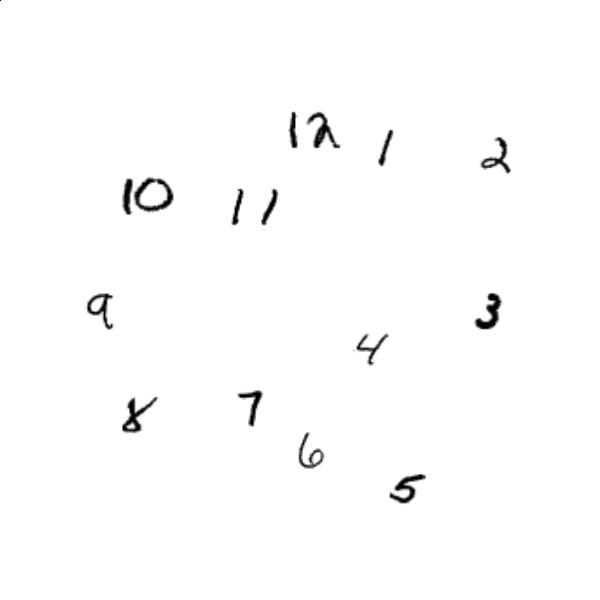 12 1 2
10 11
9 3
4
8 7
6
5